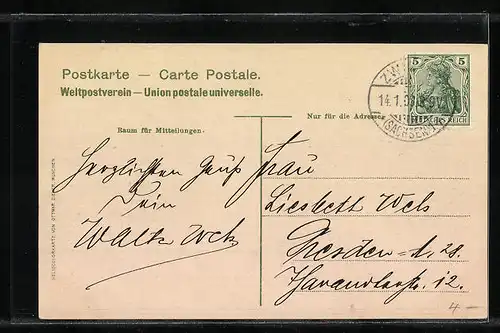 Postkarte — Carte Postale.
Weltpostverein — Union postale universelle.
Nur für die Adresse
Raum für Mitteilungen.
5 5
DEUTSCHES REICH
14.1.
(SACHSEN)
Herzlichsten Gruß
Dein
Frau
Liesbeth Wels
Dresden-A. 28.
Tharandterstr. 12.
HELIOCOLORKARTE VON OTTMAR ZIEHER, MÜNCHEN
4 —